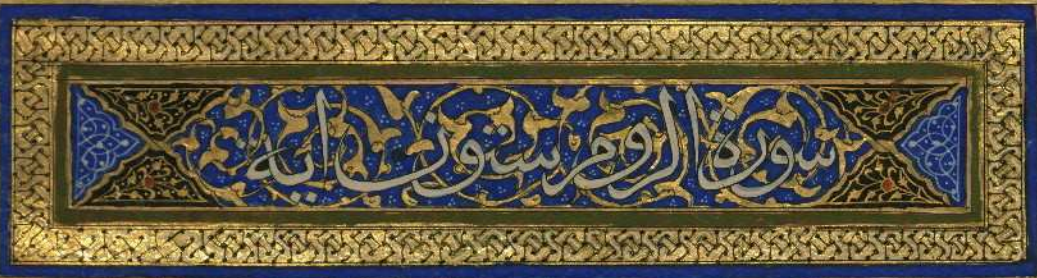 سورة الروم ستون اية